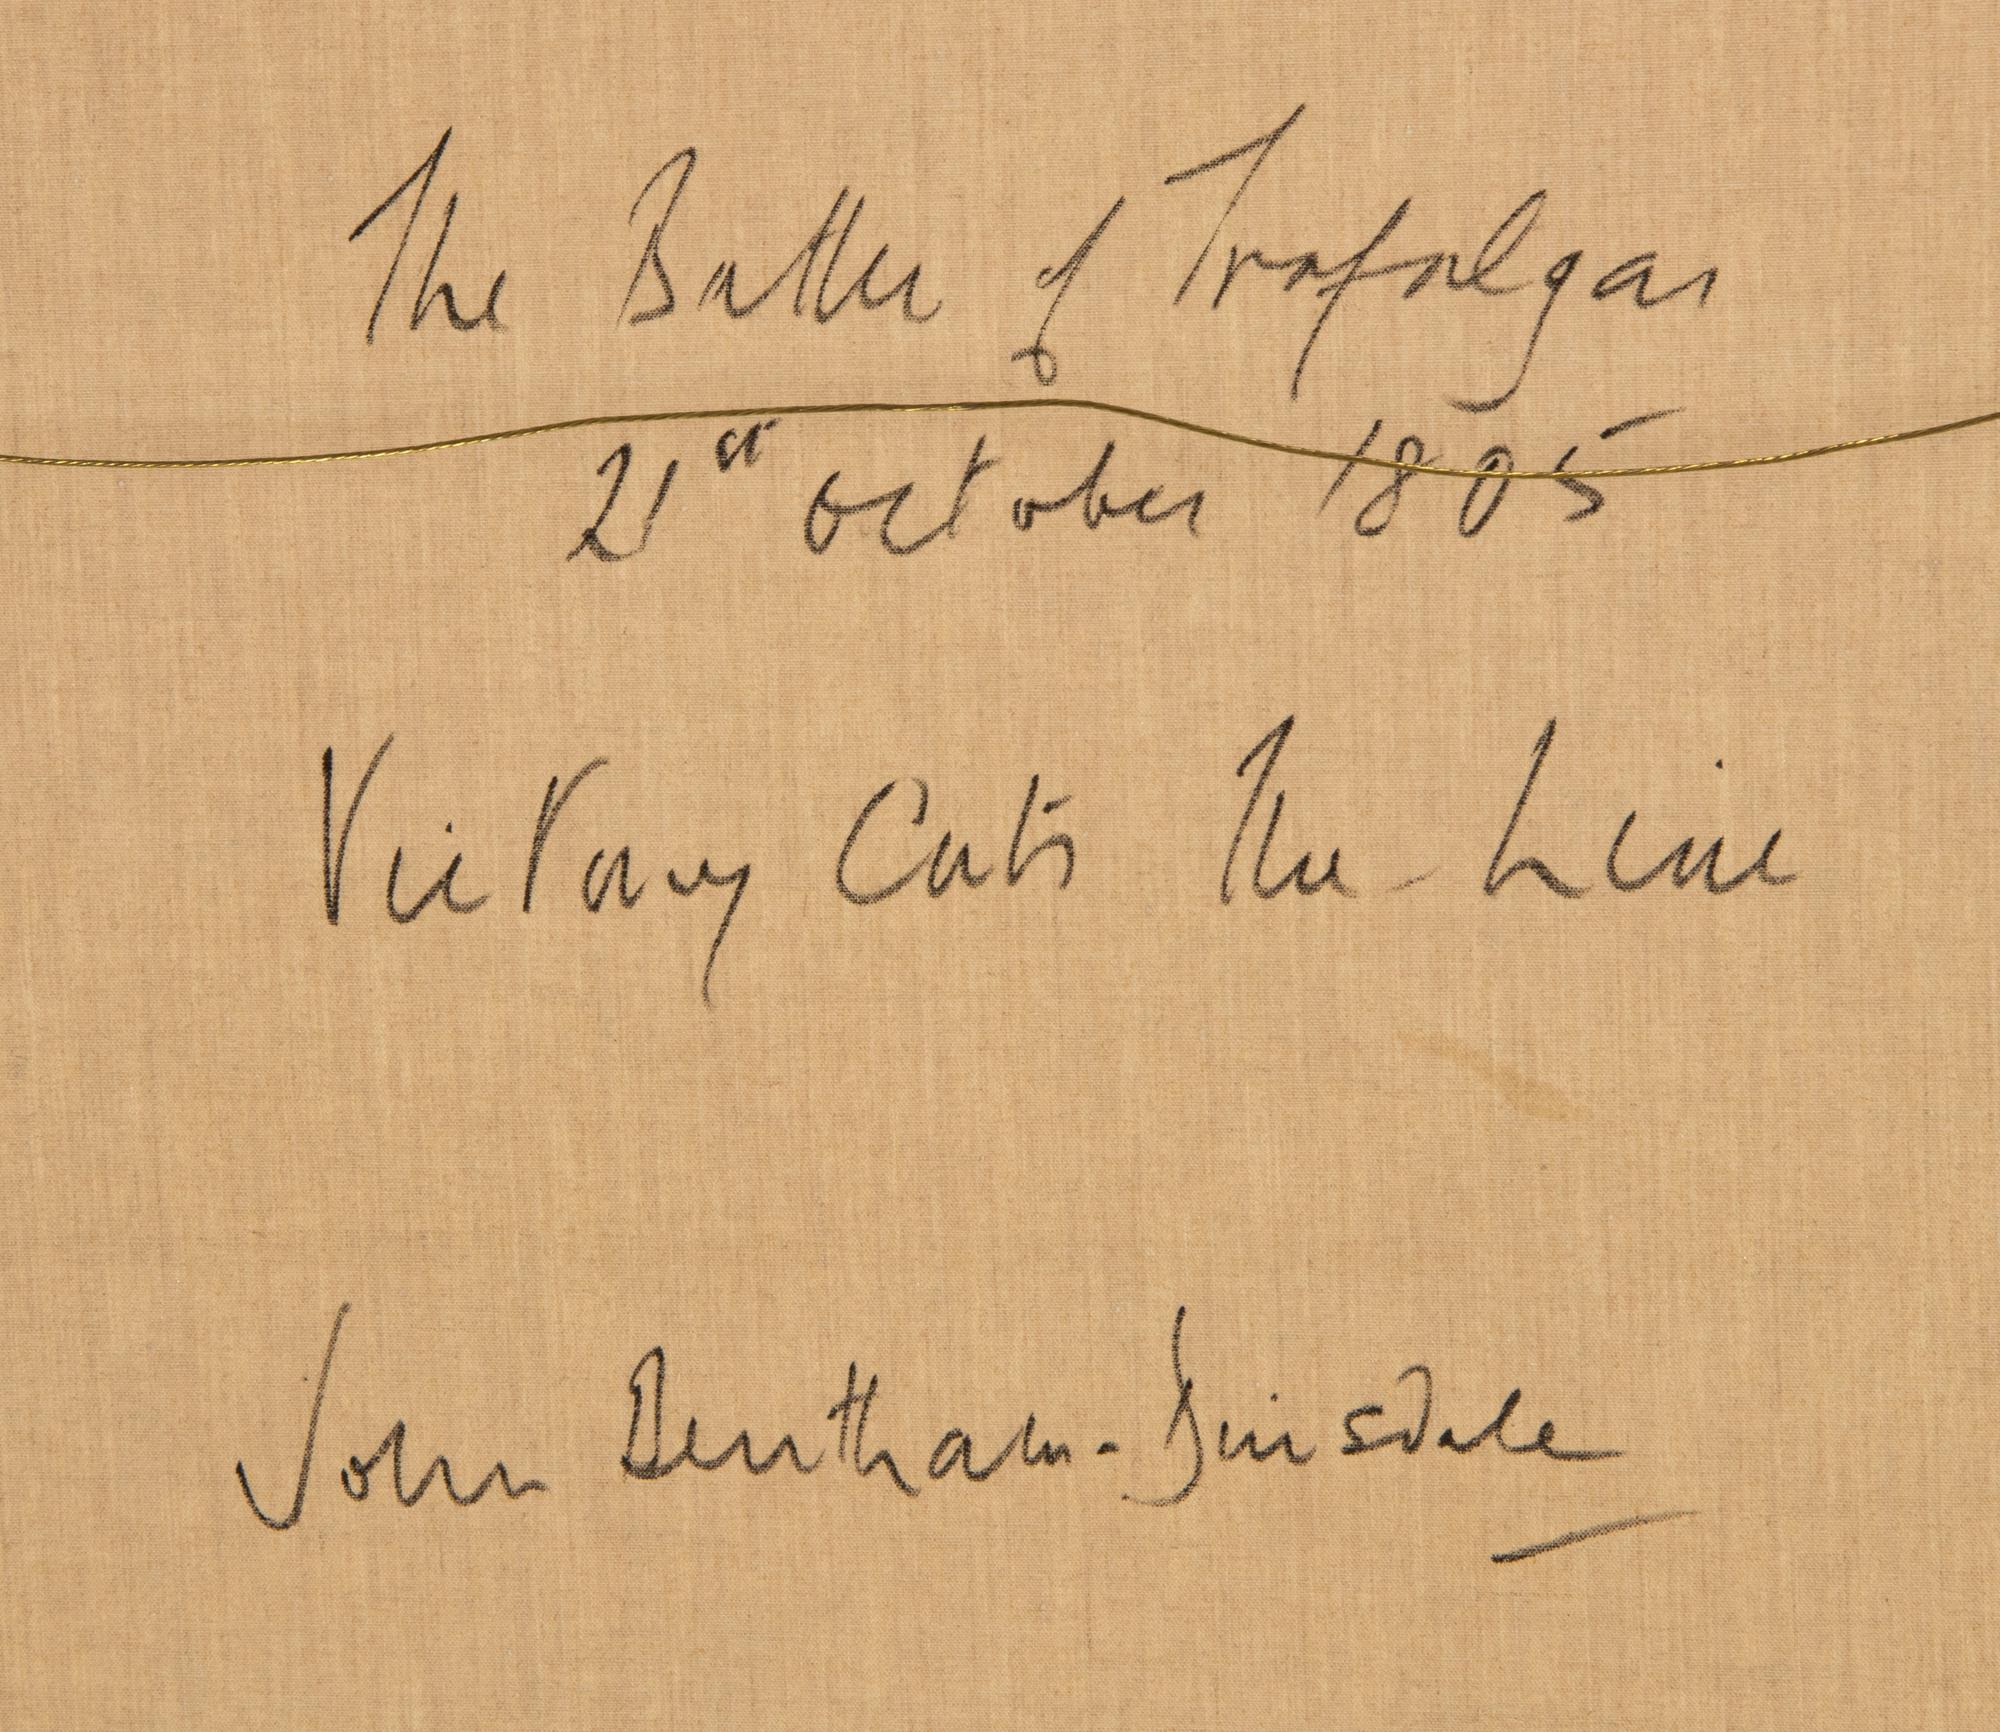 The Battle of Trafalgar
21st October 1805
Victory Cuts The Line
John Bentham-Dinsdale